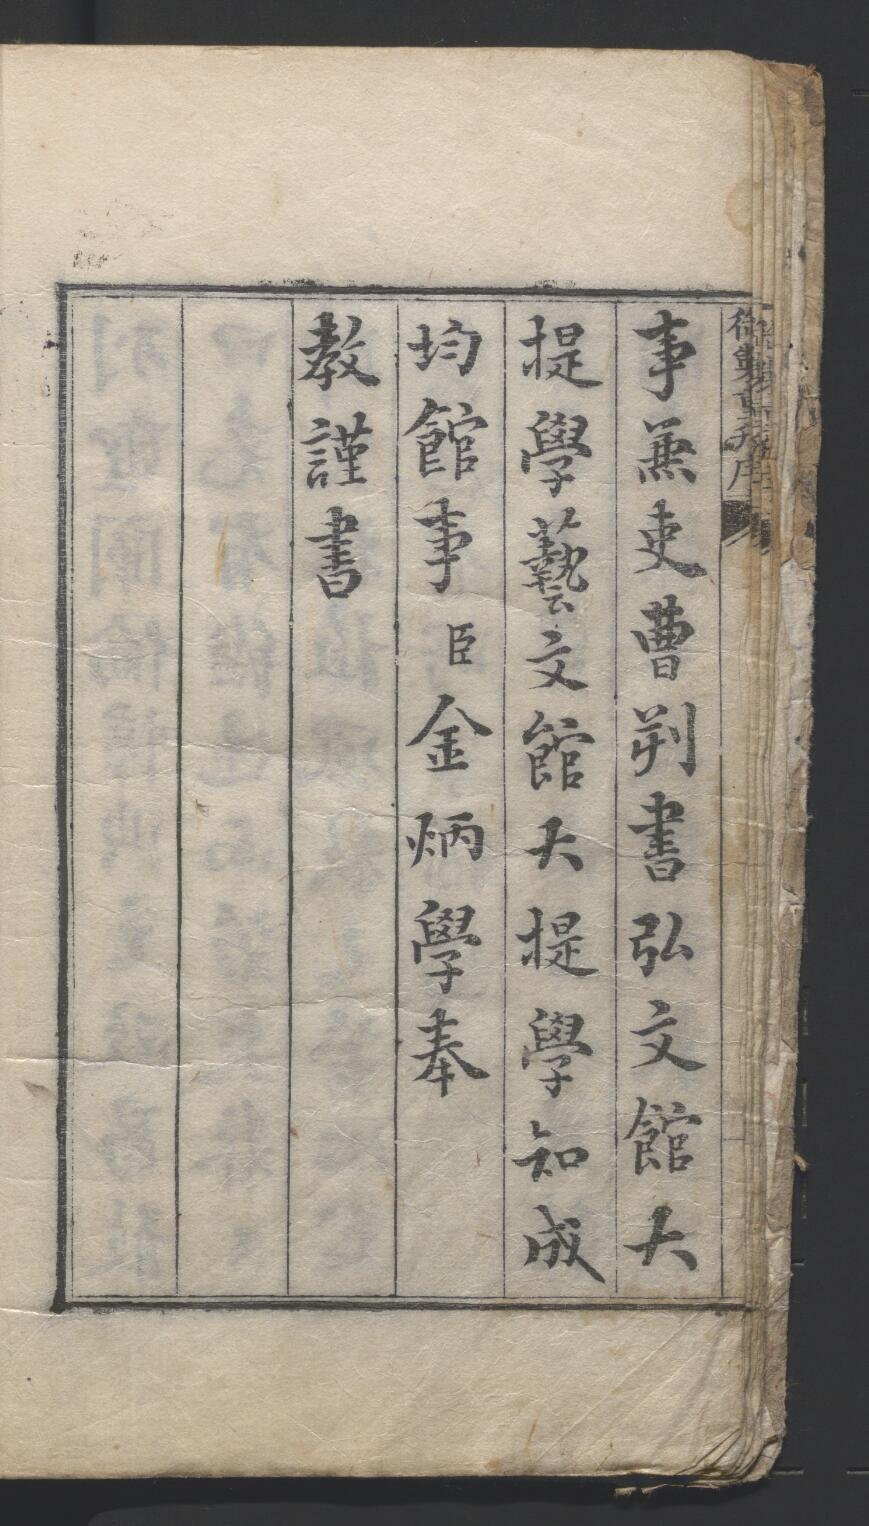 事兼吏曹判書弘文館大
提學藝文館大提學知成
均館事臣金炳學奉
教謹書